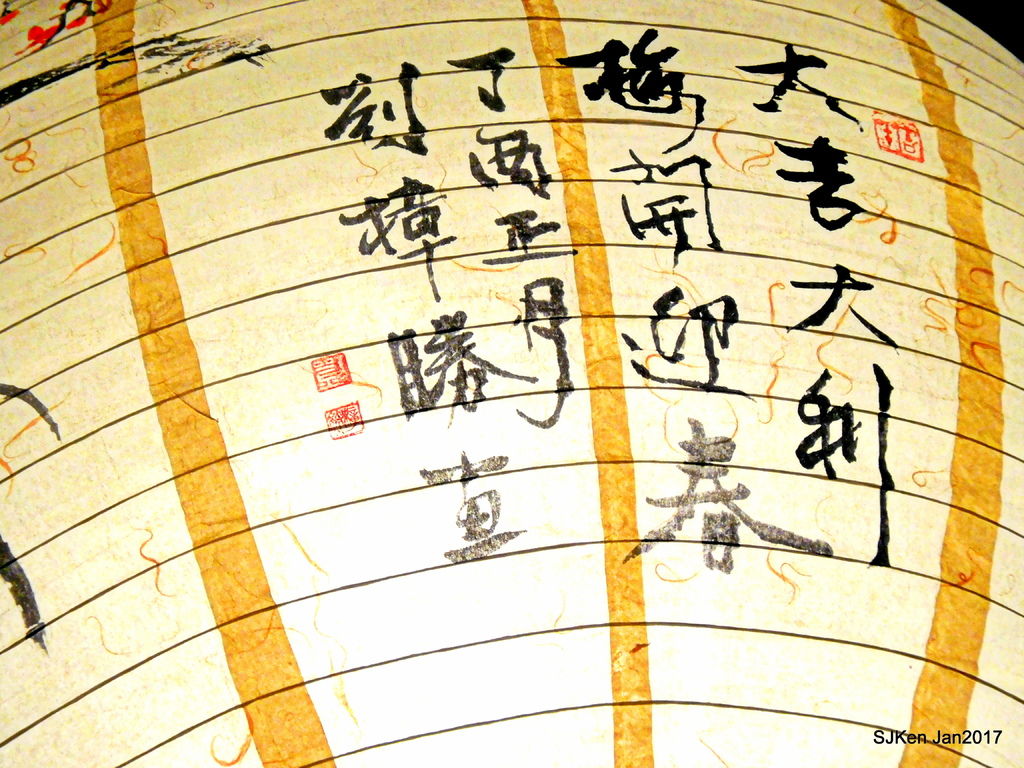 大吉大利
梅開迎春
丁酉正月
勝直
SJKen Jan2017